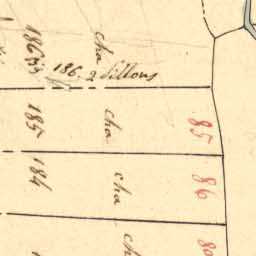 cha
186
186. 2 sillons
185
cha
85
184
cha
86
cha